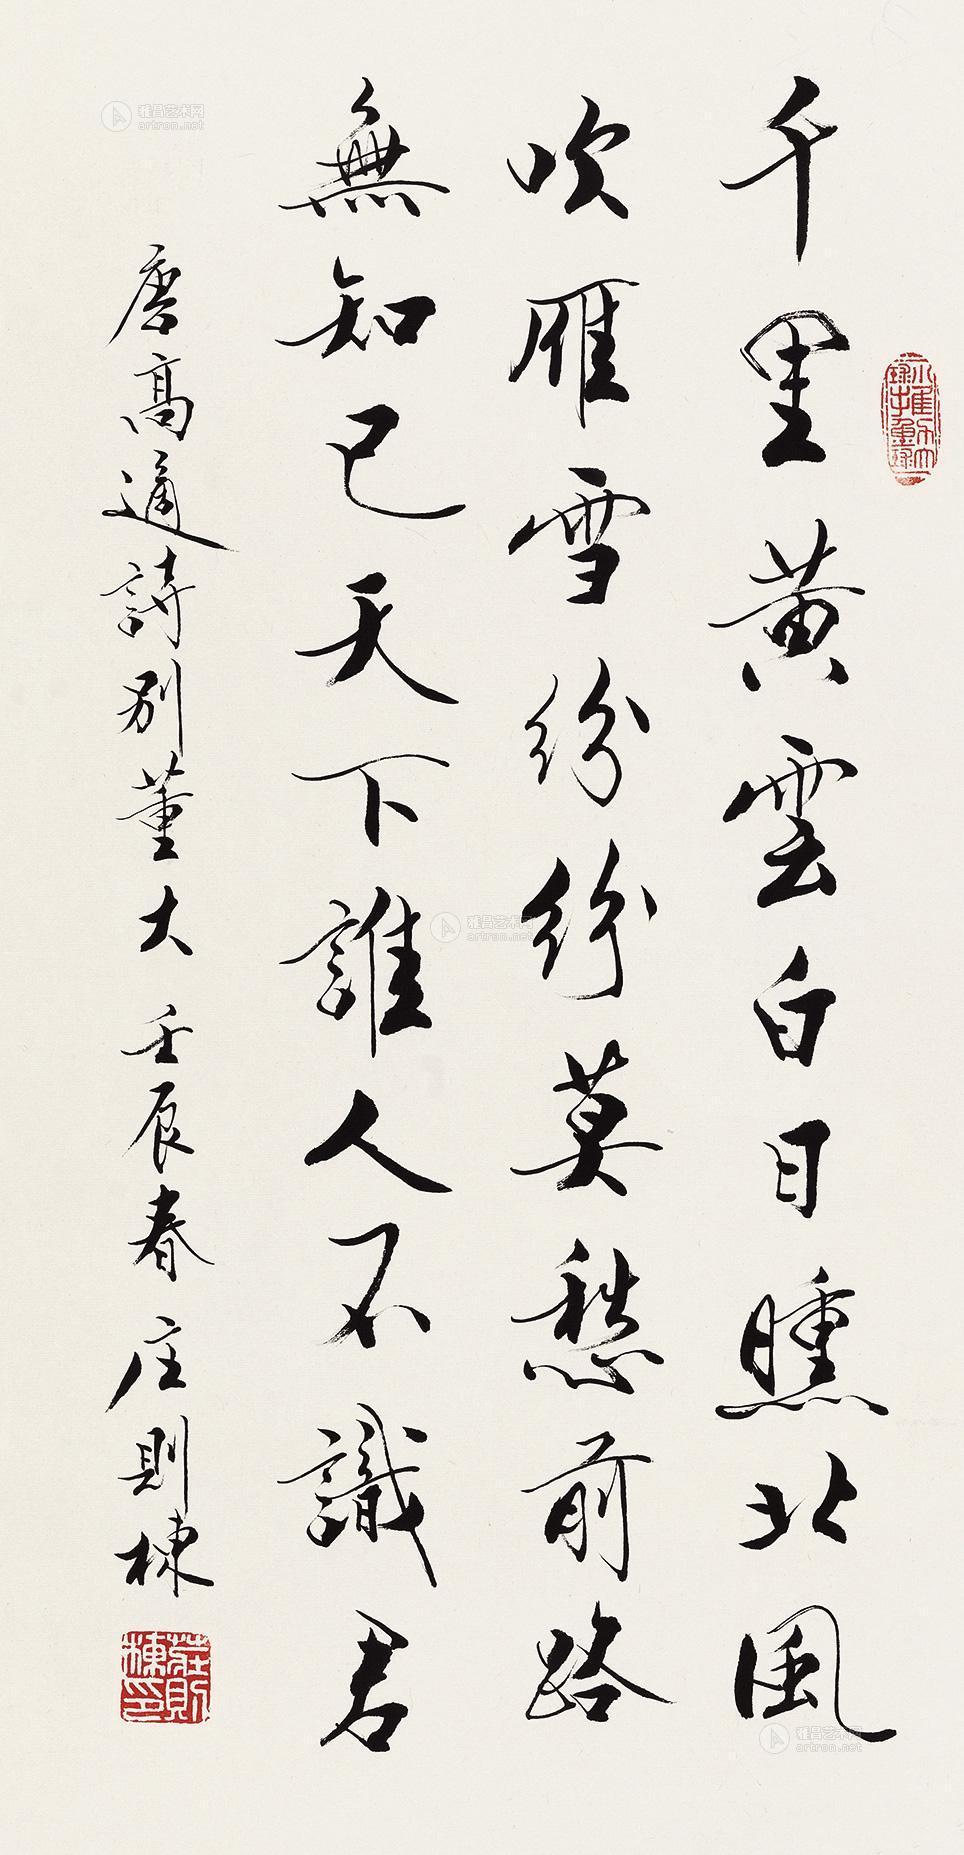 千里黄雲白日曛北風
吹雁雪紛紛莫愁前路
無知己天下誰人不識君
唐高適詩别董大 壬辰春 庄則棟
莊則棟印
雅昌艺术网
artron.net
雅昌艺术网
artron.net
雅昌艺术网
artron.net